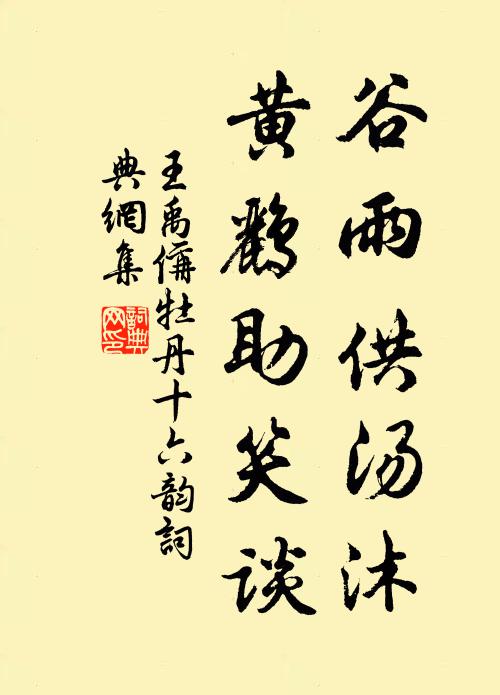 谷雨供汤沐
黄鹂助笑谈
王禹偁牡丹十六韵詞
典網集
詞典
网印